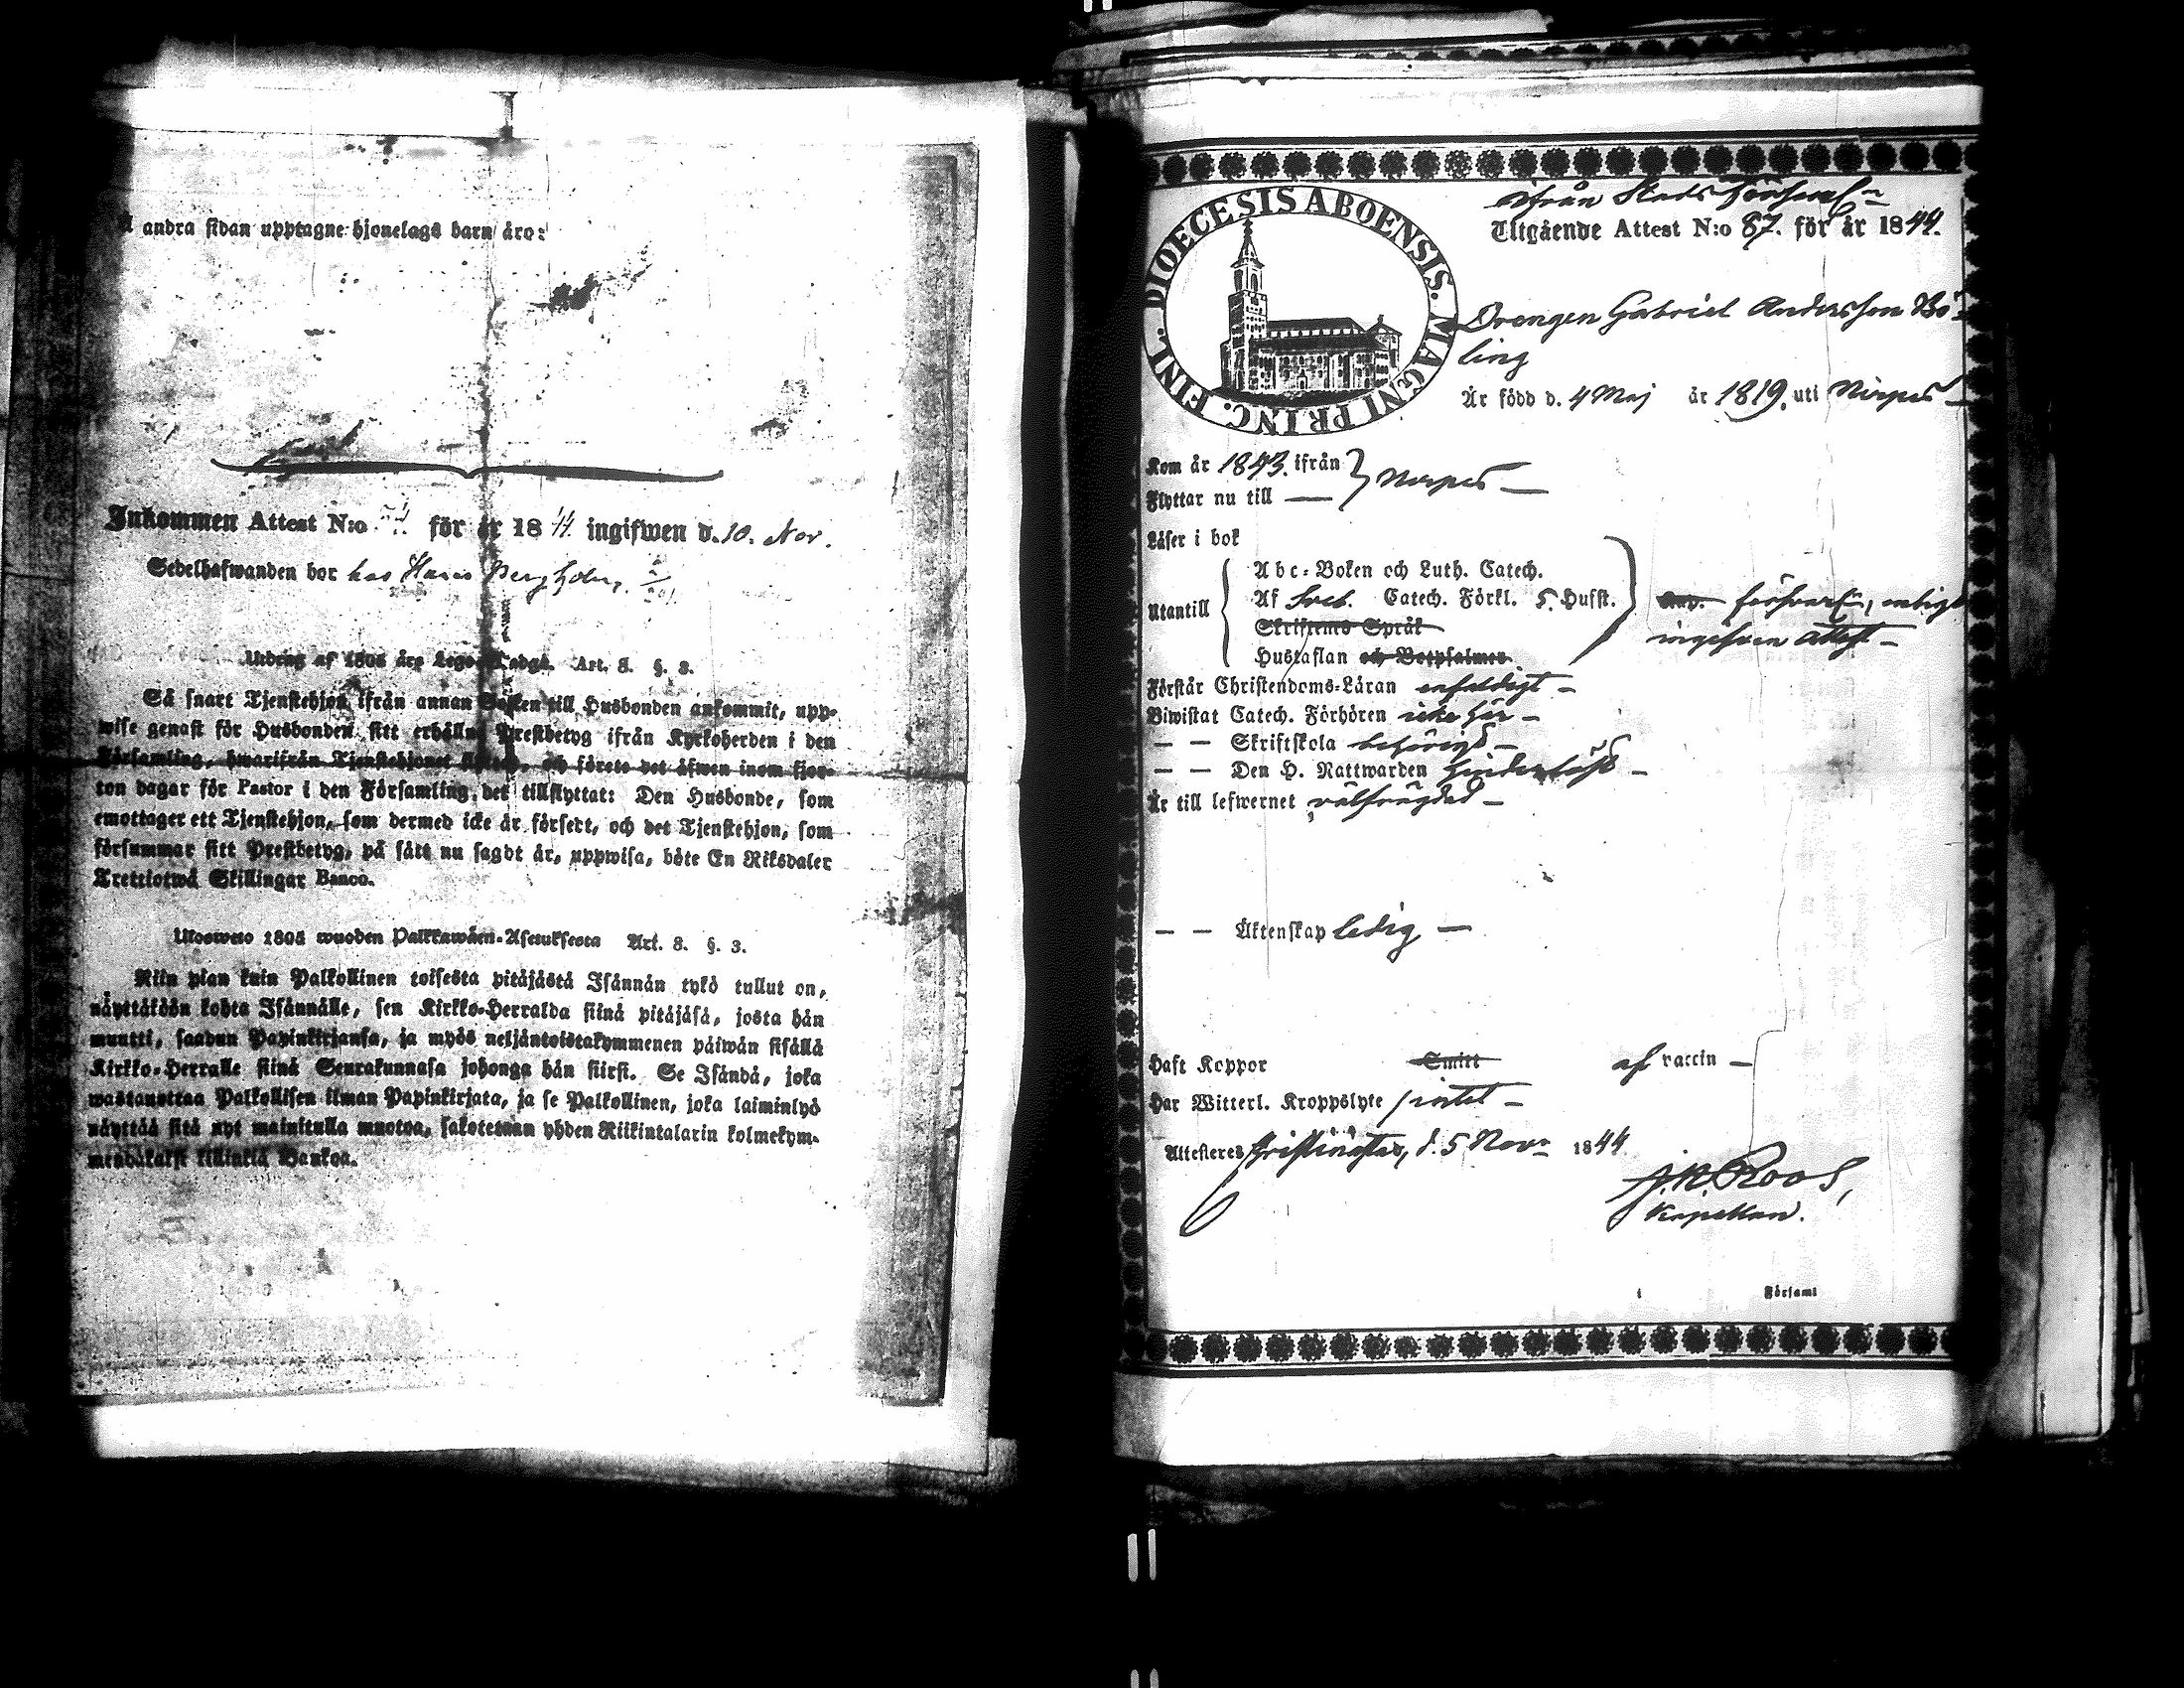 andra sidan upptagne hjonelags barn äro:
Inkommen Attest N:o 74. för år 1844. ingifwen d. 10. Nov.
Sedelhafwanden bor hos Hans
Utdrag af 1805 års Lego-Stadga. Art. 8. §. 3.
Så snart Tjenstehjon ifrån annan Socken till Husbonden ankommit, upp-
wise genast för Husbonden sitt erhållna Prestbetyg ifrån Kyrkoherden i den
Församling, hwarifrån Tjenstehjonet flyttat, och förete det äfwen inom fjor-
ton dagar för Pastor i den Församling det tillflyttat: Den Husbonde, som
emottager ett Tjenstehjon, som dermed icke är försedt, och det Tjenstehjon, som
försummar sitt Prestbetyg, på sätt nu sagdt är, uppwisa, böte En Riksdaler
Trettiotwå Skillingar Banco.
Ulosweto 1805 wuoden Palkkawäen-Asetuksesta Art. 8. §. 3.
Niin pian kuin Palkollinen toisesta pitäjästä Isännän tykö tullut on,
näyttäköön kohta Isännälle, sen Kirkko-Herralda siinä pitäjäsä, josta hän
muutti, saadun Papinkirjansa, ja myös neljäntoistakymmenen päiwän sisällä
Kirkko-Herralle siinä Seurakunnasa johonga hän siirsi. Se Isändä, joka
wastanottaa Palkollisen ilman Papinkirjata, ja se Palkollinen, joka laiminlyö
näyttää sitä nyt mainitulla muotoa, sakotetaan yhden Riikintalarin kolmekym-
mendäkaksi killinkiä Bankoa.
DIOECESIS ABOENSIS. MAGNI PRINC. FINL.
ifrån Stads Församl:n
Utgående Attest N:o 87. för år 1844.
Drengen Gabriel Andersson Bö-
ling
Är född d. 4 Maj år 1819. uti Nerpes
Kom år 1843. ifrån } Nerpes
Flyttar nu till
Läser i bok
Abc-Boken och Luth. Catech.
Utantill Af Sveb. Catech. Förkl. S. Husst. försvarl:n, enligt
Skriftens Språk ingifven attest
Hustaflan och Botpsalmer
Förstår Christendoms-Läran enfaldigt
Biwistat Catech. Förhören icke här
— — Skriftskola behörigt
— — Den H. Nattwarden hinderlöst
Är till lefwernet välfrägdad
— — Äktenskap ledig
Haft Koppor Smitt af vaccin
Har Witterl. Kroppslyte intet
Attesteres Christinestad, d. 5 Nov:r 1844.
J.R. Roos,
Kapellan.
i Församl